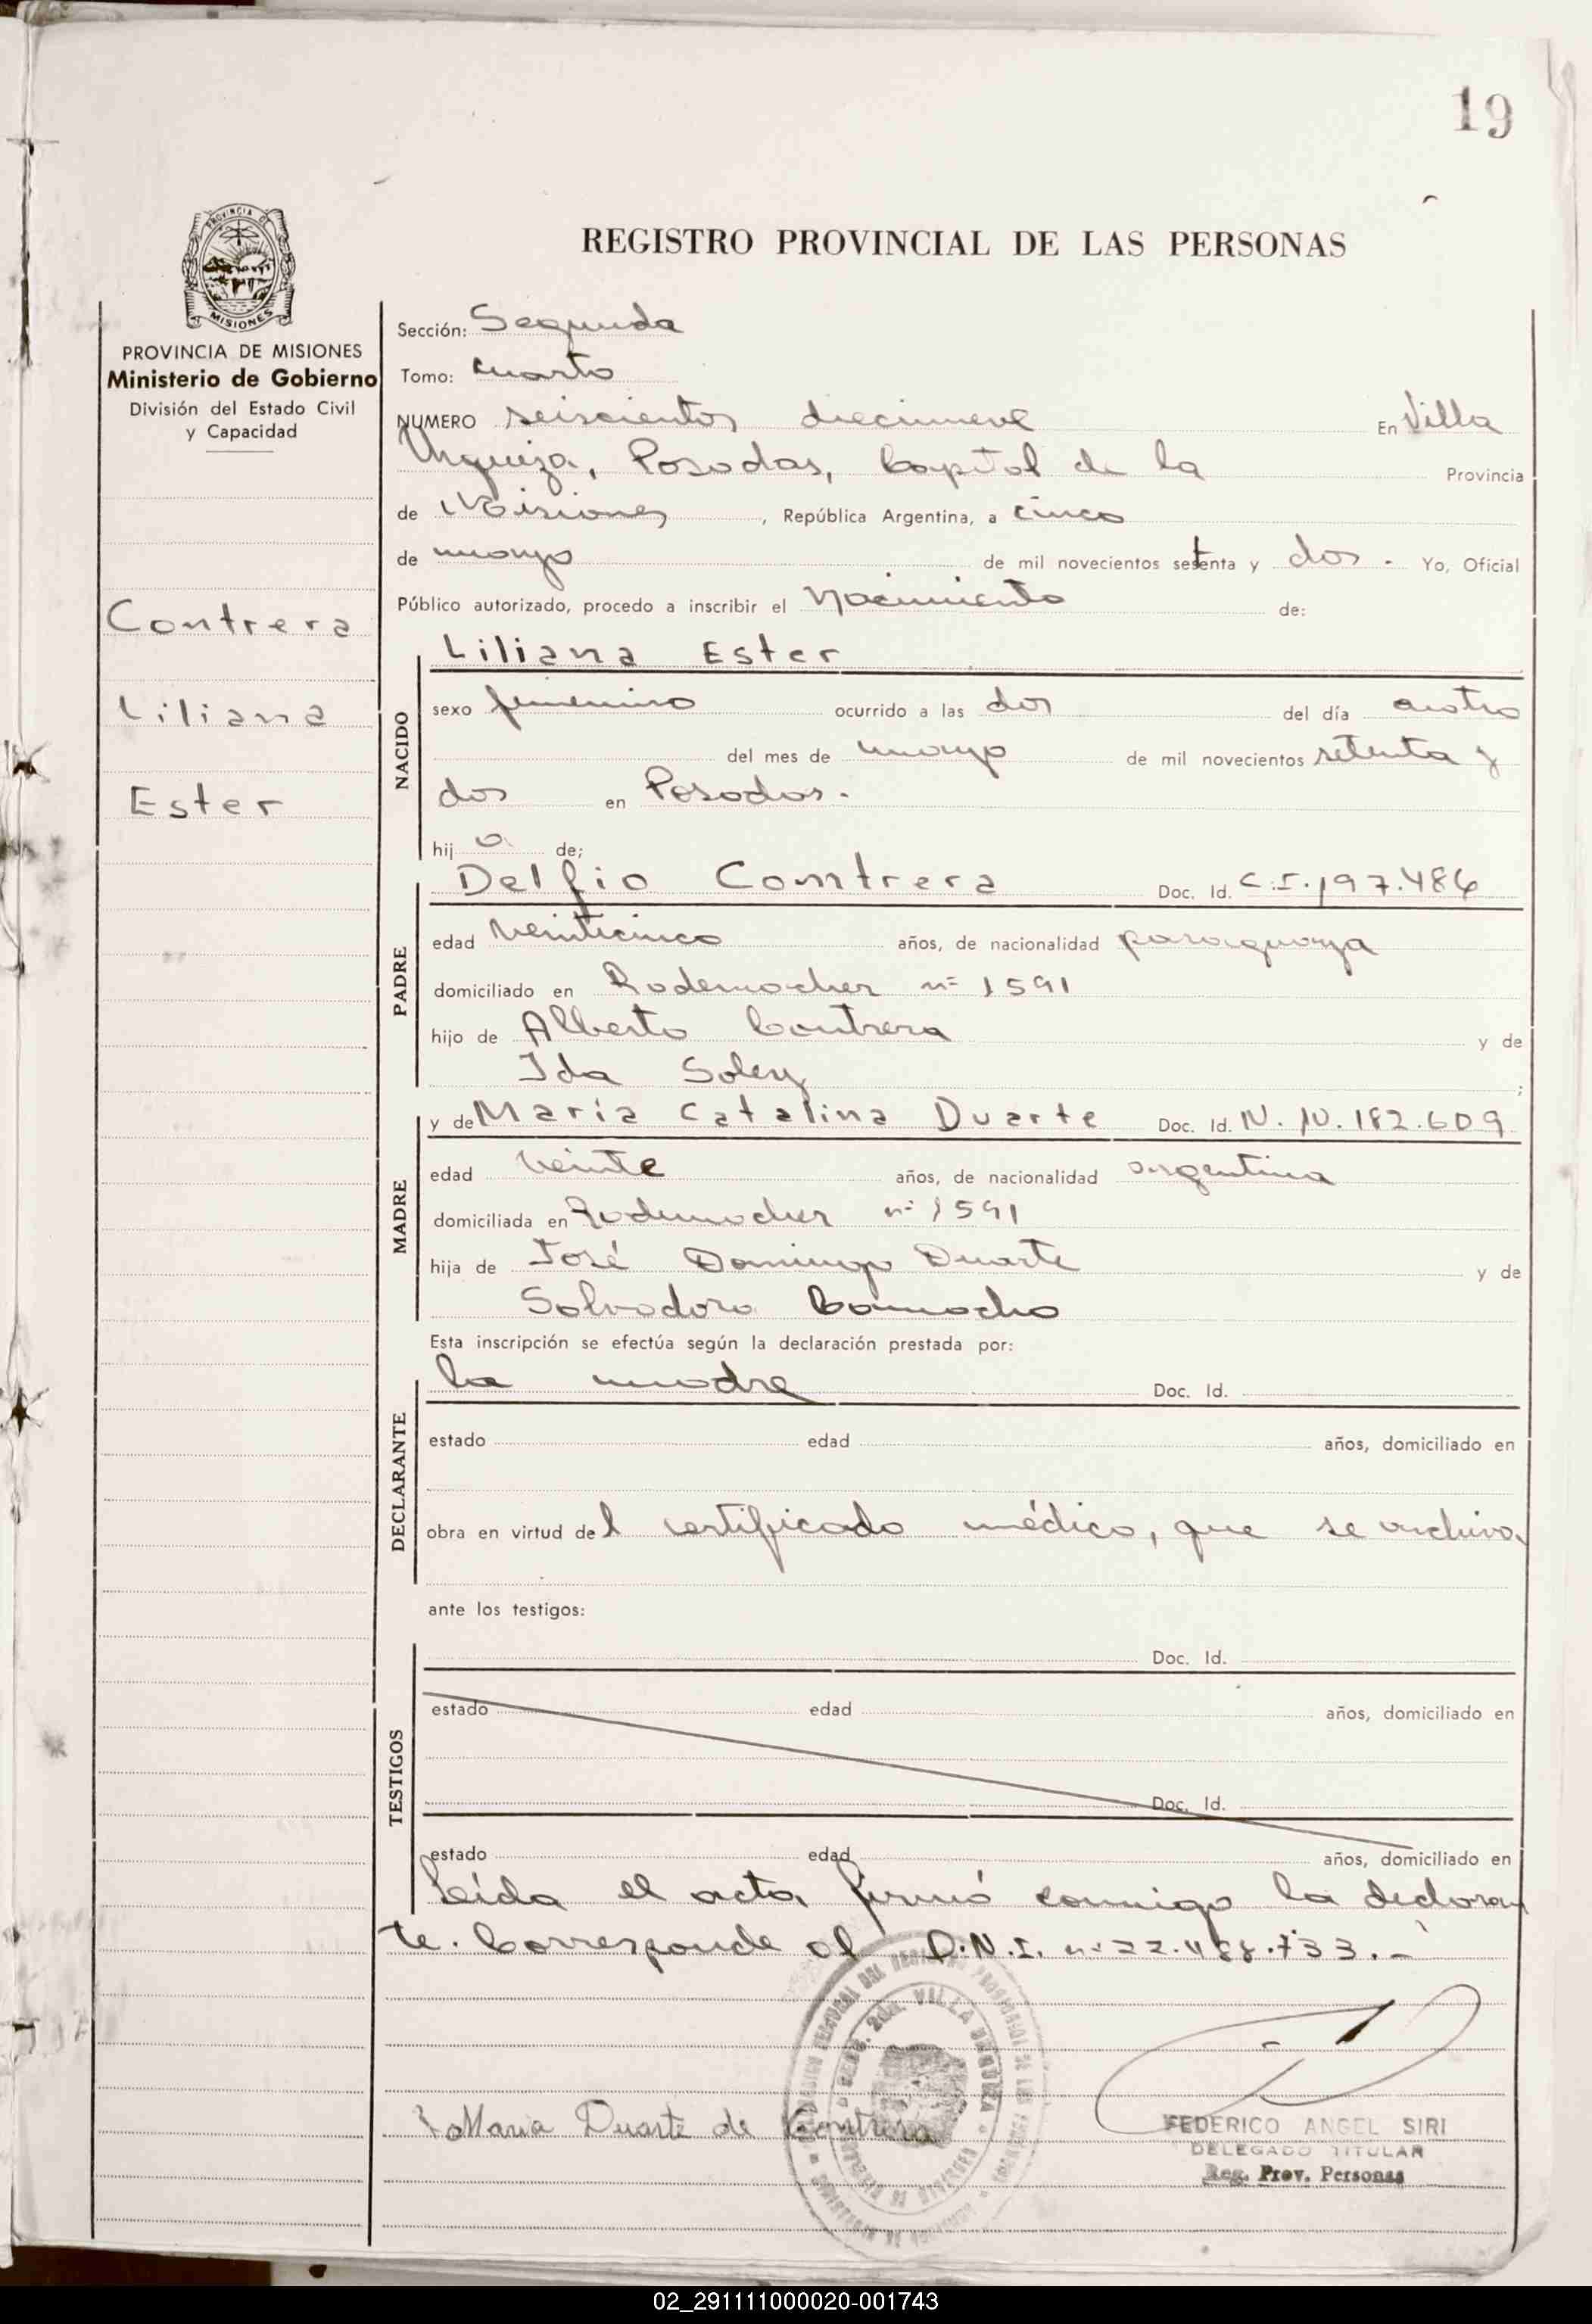 19
REGISTRO PROVINCIAL DE LAS PERSONAS
PROVINCIA DE
MISIONES
PROVINCIA DE MISIONES
Ministerio de Gobierno
División del Estado Civil
y Capacidad
Contrera
Liliana
Ester
Sección: Segunda
Tomo: cuarto
NUMERO seiscientos diecinueve En Villa
Urquiza, Posadas, Capital de la Provincia
de Misiones, República Argentina, a cinco
de mayo de mil novecientos setenta y dos. Yo, Oficial
Público autorizado, procedo a inscribir el Nacimiento de:
NACIDO
Liliana Ester
sexo femenino ocurrido a las dos del día cuatro
del mes de mayo de mil novecientos setenta y
dos en Posadas.
hija de;
PADRE
Delfio Contrera Doc. Id. C.I. 197.486
edad veinticinco años, de nacionalidad paraguaya
domiciliado en Rademacher nº 1591
hijo de Alberto Contrera y de
Ida Soley;
MADRE
y de María Catalina Duarte Doc. Id. N. N. 182.609
edad veinte años, de nacionalidad argentina
domiciliada en Rademacher nº 1591
hija de José Domingo Duarte y de
Salvadora Camacho
Esta inscripción se efectúa según la declaración prestada por:
DECLARANTE
la madre Doc. Id.
estado edad años, domiciliado en
obra en virtud del certificado médico, que se archiva
ante los testigos:
TESTIGOS
Doc. Id.
estado edad años, domiciliado en
Doc. Id.
estado edad años, domiciliado en
Leída el acta, firmó conmigo la declaran
te. Corresponde al D.N.I. nº 22.488.733.-
SECC. 2da. VILLA URQUIZA
Maria Duarte de Contrera
FEDERICO ANGEL SIRI
DELEGADO TITULAR
Reg. Prov. Personas
02_291111000020-001743